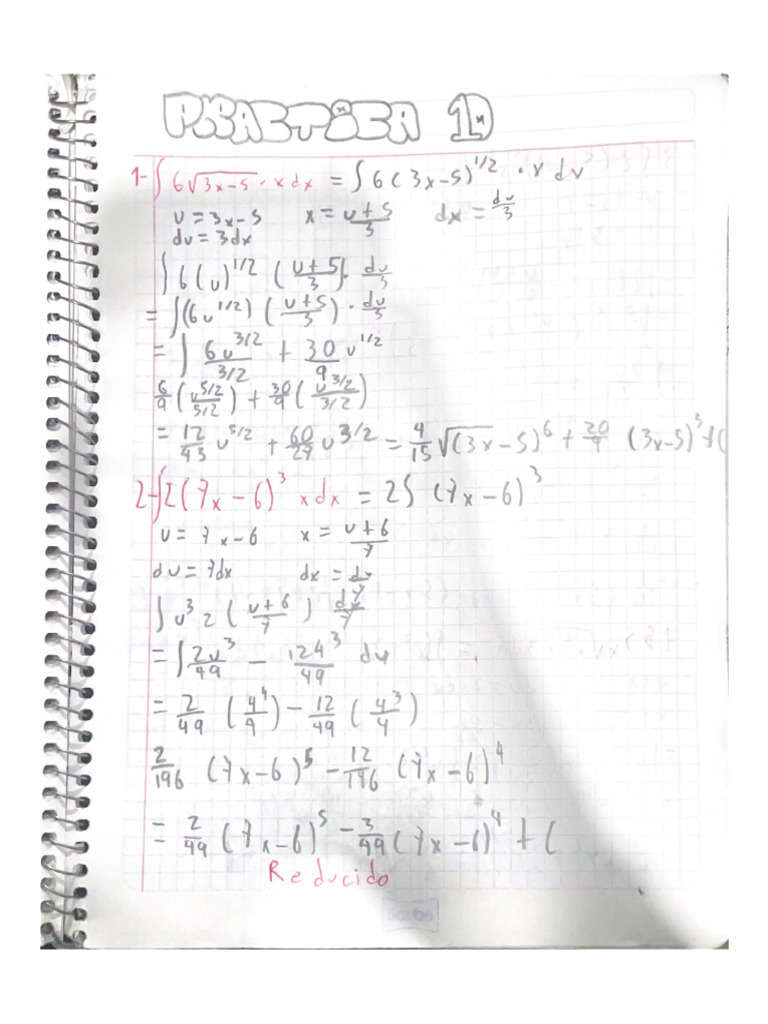 PRACTICA 10
1- ∫ 6√3x-5 · x dx = ∫ 6 (3x-5)^1/2 · x dv
u = 3x-5   x = u+5/3   dx = du/3
du = 3dx
∫ 6 (u)^1/2 (u+5/3) · du/3
= ∫ (6u^1/2) (u+5/3) · du/3
= ∫ 6u^3/2 / 3/2 + 30/9 u^1/2
6/9 (u^5/2 / 5/2) + 30/9 (u^3/2 / 3/2)
= 12/45 u^5/2 + 60/27 u^3/2 = 4/15 √(3x-5)^6 + 20/9 (3x-5)^3 + C
2- ∫ 2(7x-6)^3 x dx = 2∫ (7x-6)^3
u = 7x-6   x = u+6/7
du = 7dx   dx = du/7
∫ u^3 2 (u+6/7) du/7
= ∫ 2u^3/49 - 124^3/49 du
= 2/49 (4^4/9) - 12/49 (4^3/4)
2/196 (7x-6)^5 - 12/196 (7x-6)^4
= 2/49 (7x-6)^5 - 3/49 (7x-6)^4 + C
Reducido
Scribe